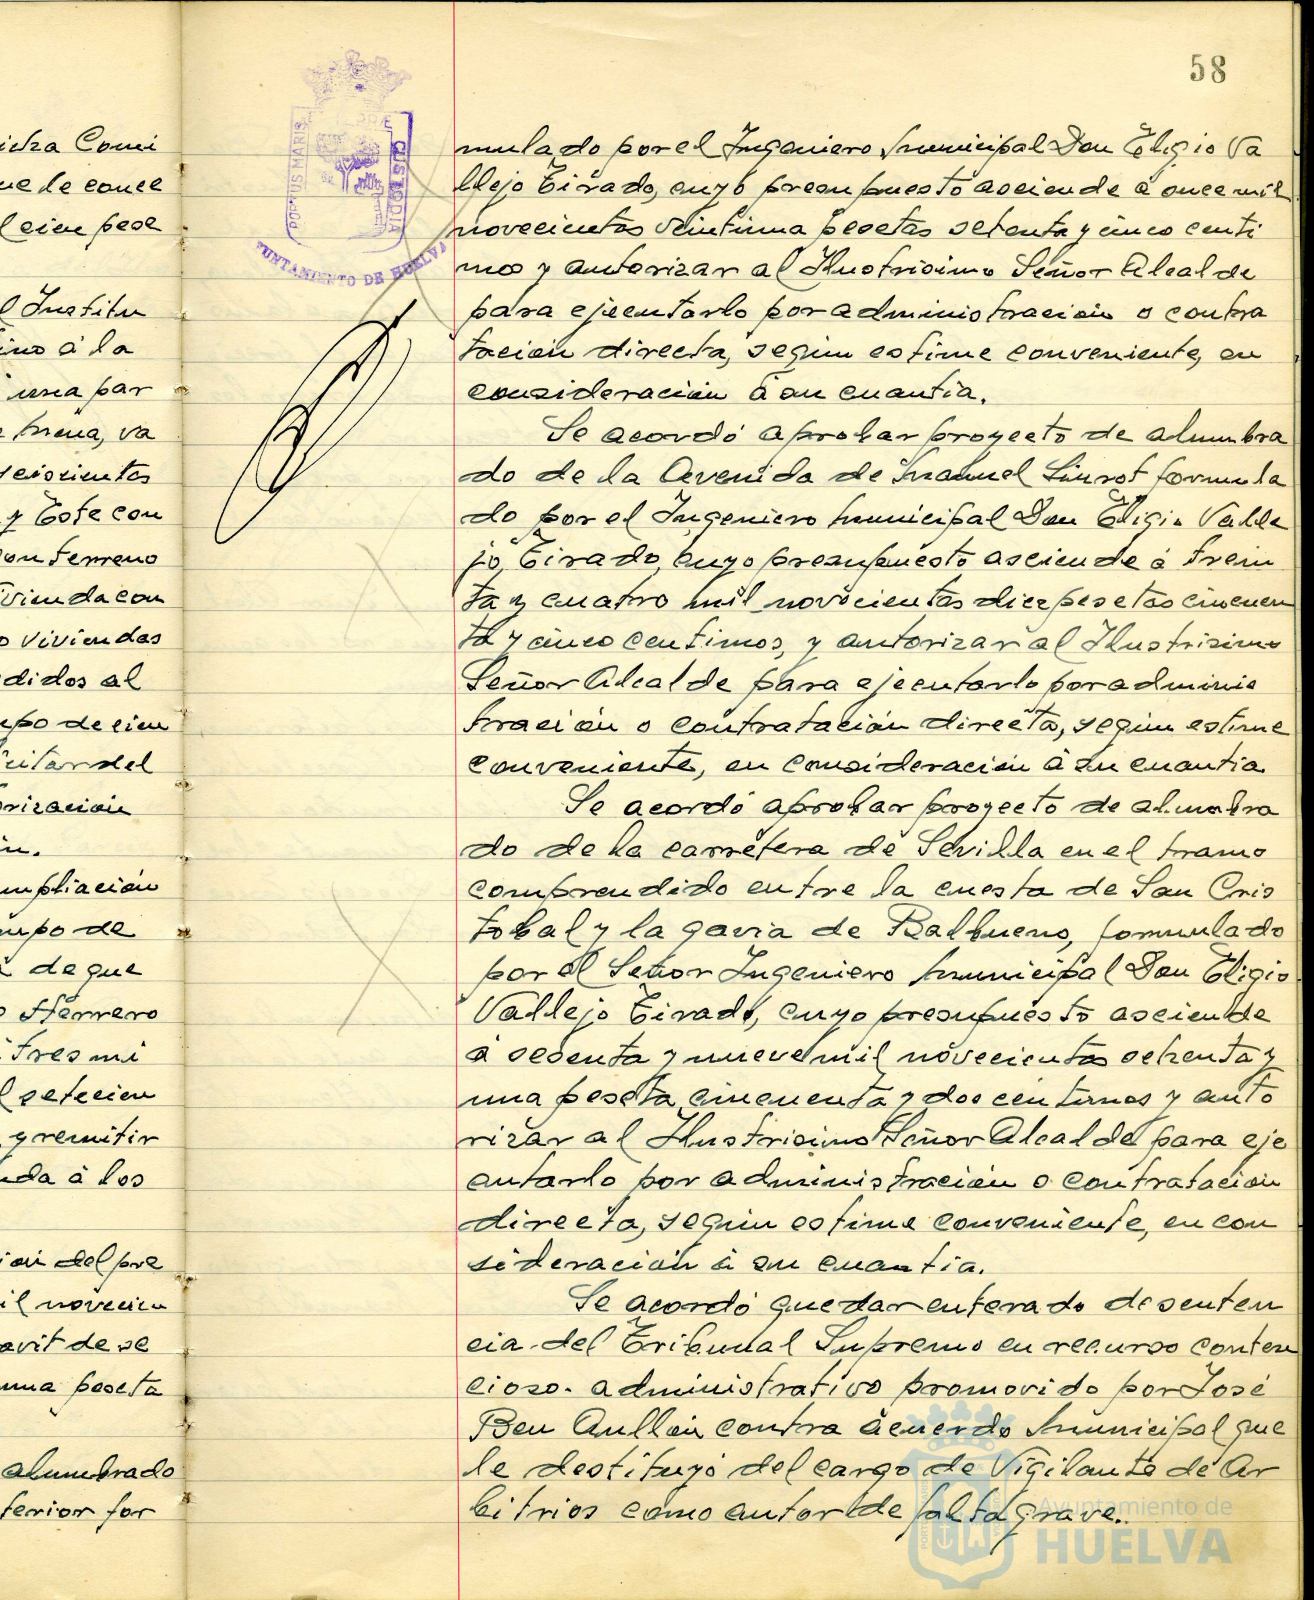 58
PORTUS MARIS
CUSTODIA
UNTAMIENTO DE HUELVA
mulado por el Ingeniero Municipal Don Eligio Va
llejo Tirado, cuyo presupuesto asciende á once mil
novecientas veintiuna pesetas setenta y cinco centi
mos y autorizar al Ilustrisimo Señor Alcalde
para ejecutarlo por administración o contra
tación directa, según estime conveniente, en
consideración á su cuantia.
Se acordó aprobar proyecto de alumbra
do de la Avenida de Manuel Siurot formula
do por el Ingeniero Municipal Don Eligio Valle
jo Tirado, cuyo presupuesto asciende á trein
ta y cuatro mil novecientas diez pesetas cincuen
ta y cinco centimos, y autorizar al Ilustrisimo
Señor Alcalde para ejecutarlo por adminis
tración o contratación directa, según estime
conveniente, en consideración á su cuantia
Se acordó aprobar proyecto de alumbra
do de la carretera de Sevilla en el tramo
comprendido entre la cuesta de San Cris
tobal y la gavia de Balbueno, formulado
por el Señor Ingeniero Municipal Don Eligio
Vallejo Tirado, cuyo presupuesto asciende
á sesenta y nueve mil novecientas setenta y
una peseta cincuenta y dos centimos y auto
rizar al Ilustrisimo Señor Alcalde para eje
cutarlo por administración o contratación
directa, según estime conveniente, en con
sideración á su cuantia.
Se acordó quedar enterado de senten
cia del Tribunal Supremo en recurso conten
cioso-administrativo promovido por José
Beu Aullón contra acuerdo Municipal que
le destituyó del cargo de Vigilante de Ar
bitrios como autor de falta grave.
Comi
ue le conce
cien pese
l Institu
ino á la
una par
buena, va
seiscientas
y Este con
con terreno
vivienda con
o viviendas
didos al
upo de cien
citar del
orización
ampliación
upo de
de que
Herrero
tres mi
l setecien
y remitir
nda á los
ión del pre
il novecien
avit de se
una peseta
alumbrado
ferior for
Ayuntamiento de
HUELVA